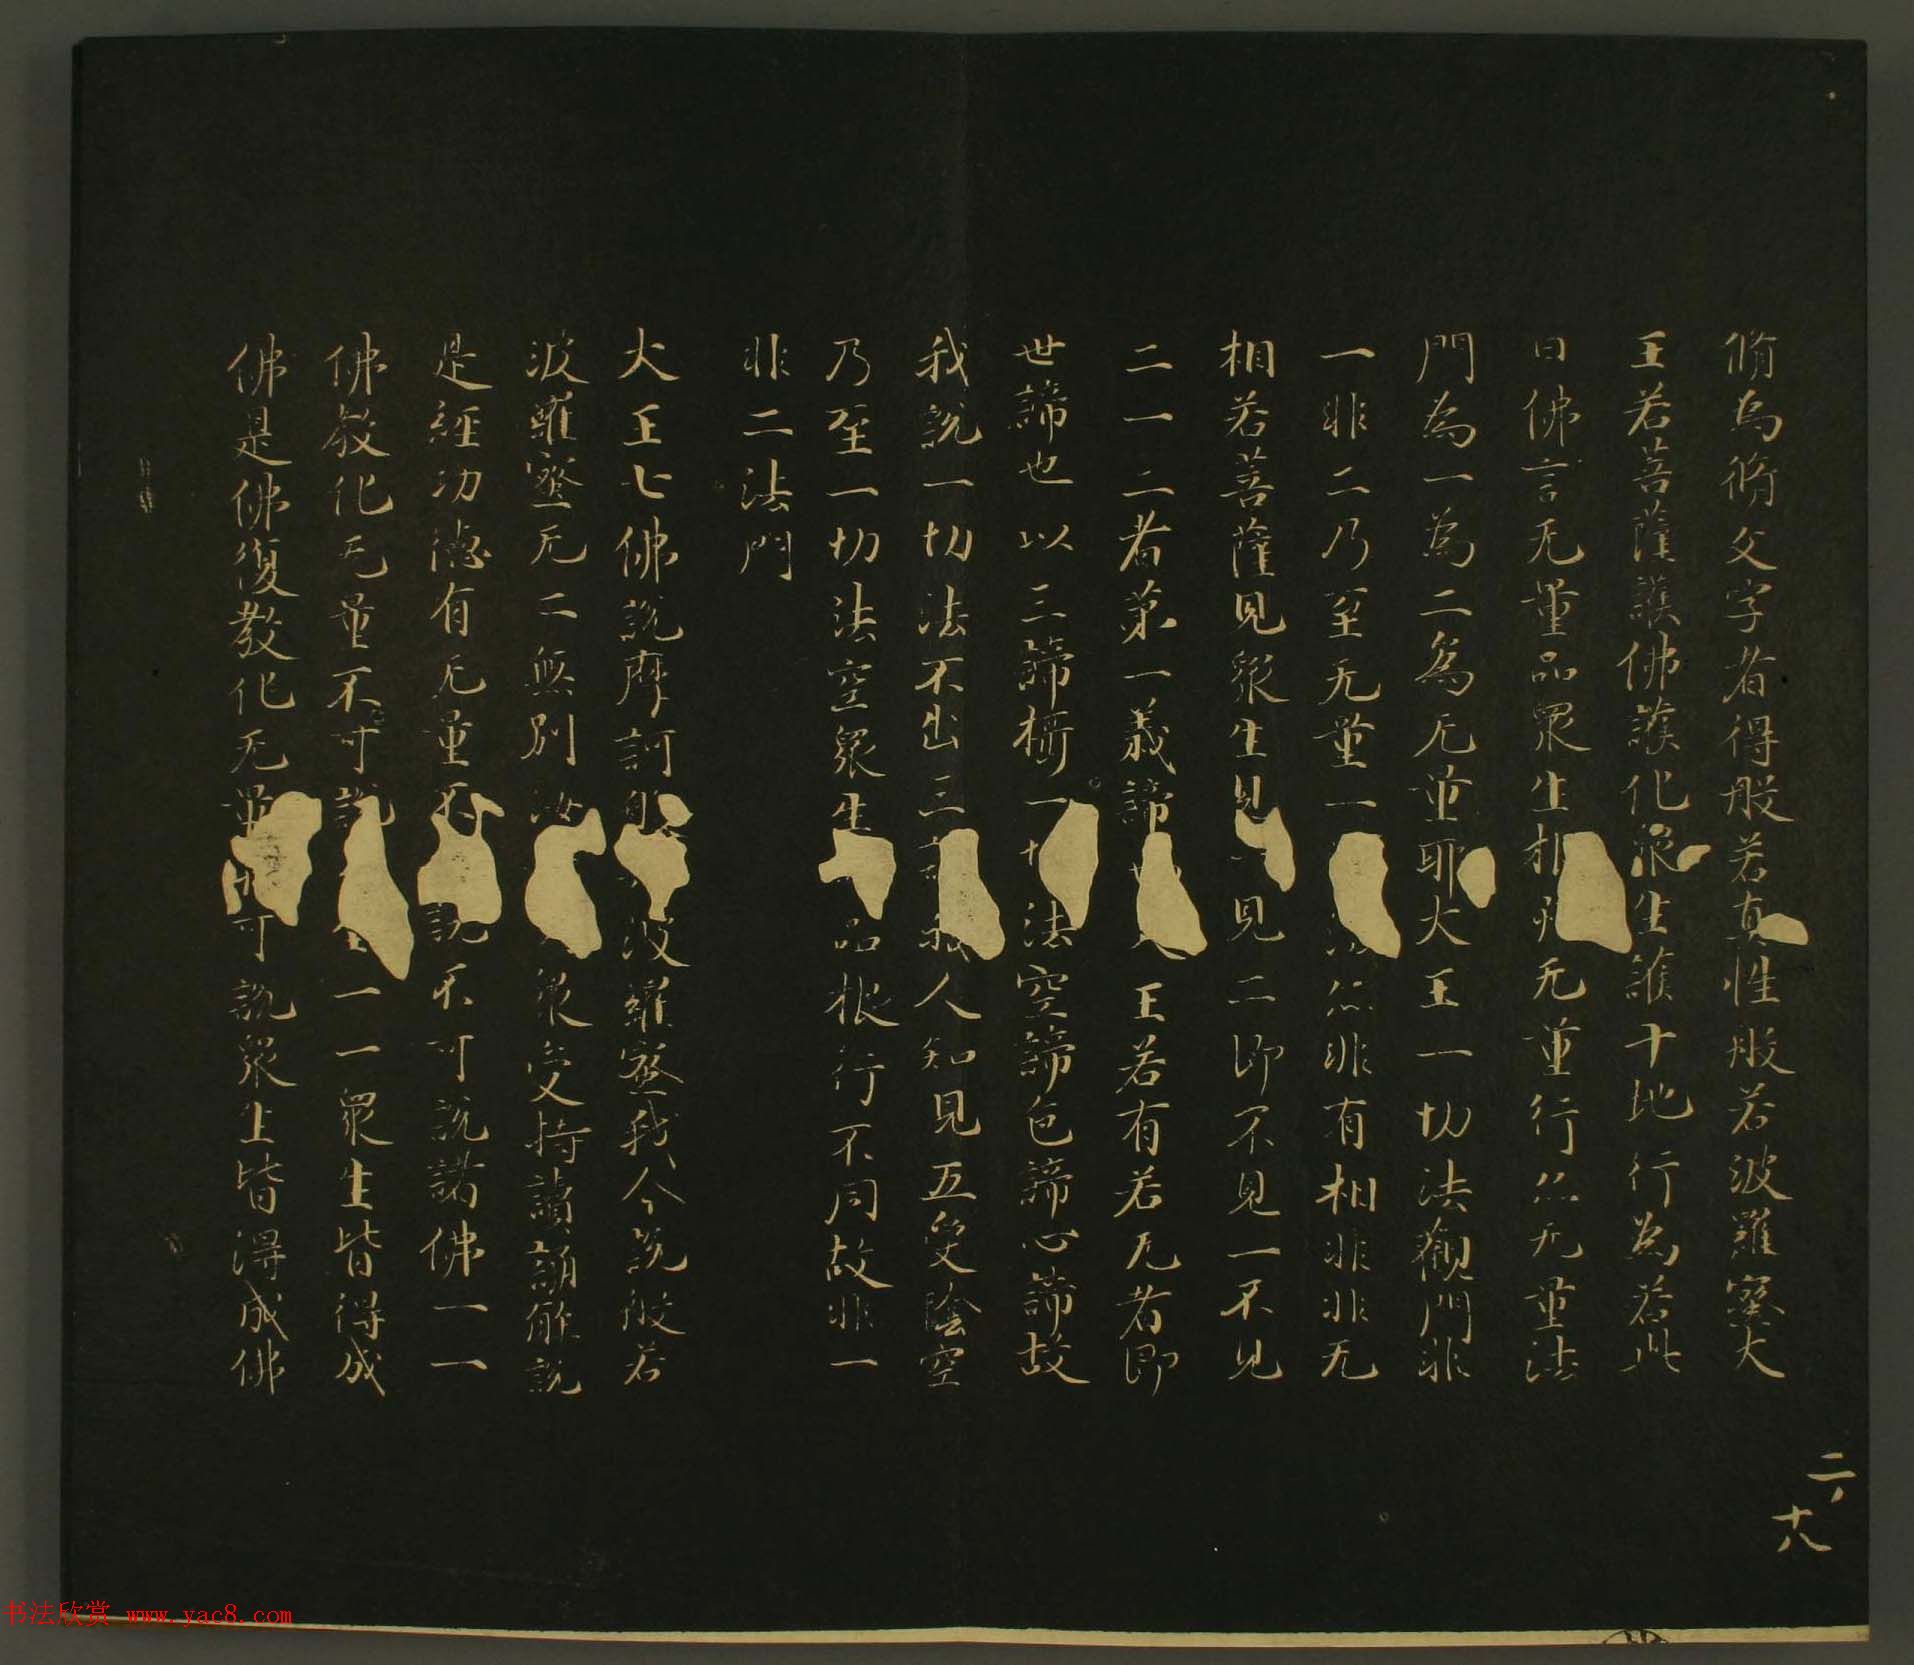 脩為脩文字者得般若真性般若波羅蜜大
王若菩薩護佛護化眾生護十地行為若此
白佛言无量品眾生根无量行亦无量法
門為一為二為无量耶大王一切法觀門非
一非二乃至无量一法亦非有相非非无
相若菩薩見眾生見一見二即不見一不見
二一二者第一義諦王若有若无者即
世諦也以三諦攝一切法空諦色諦心諦故
我說一切法不出三我人知見五受陰空
乃至一切法空眾生品根行不同故非一
非二法門
大王七佛說摩訶般波羅蜜我今說般若
波羅蜜无二無別汝眾受持讀誦解說
是經功德有无量不說不可說諸佛一一
佛教化无量不可說生一一眾生皆得成
佛是佛復教化无量可說眾生皆得成佛
二、十八
书法欣赏 www.yac8.com